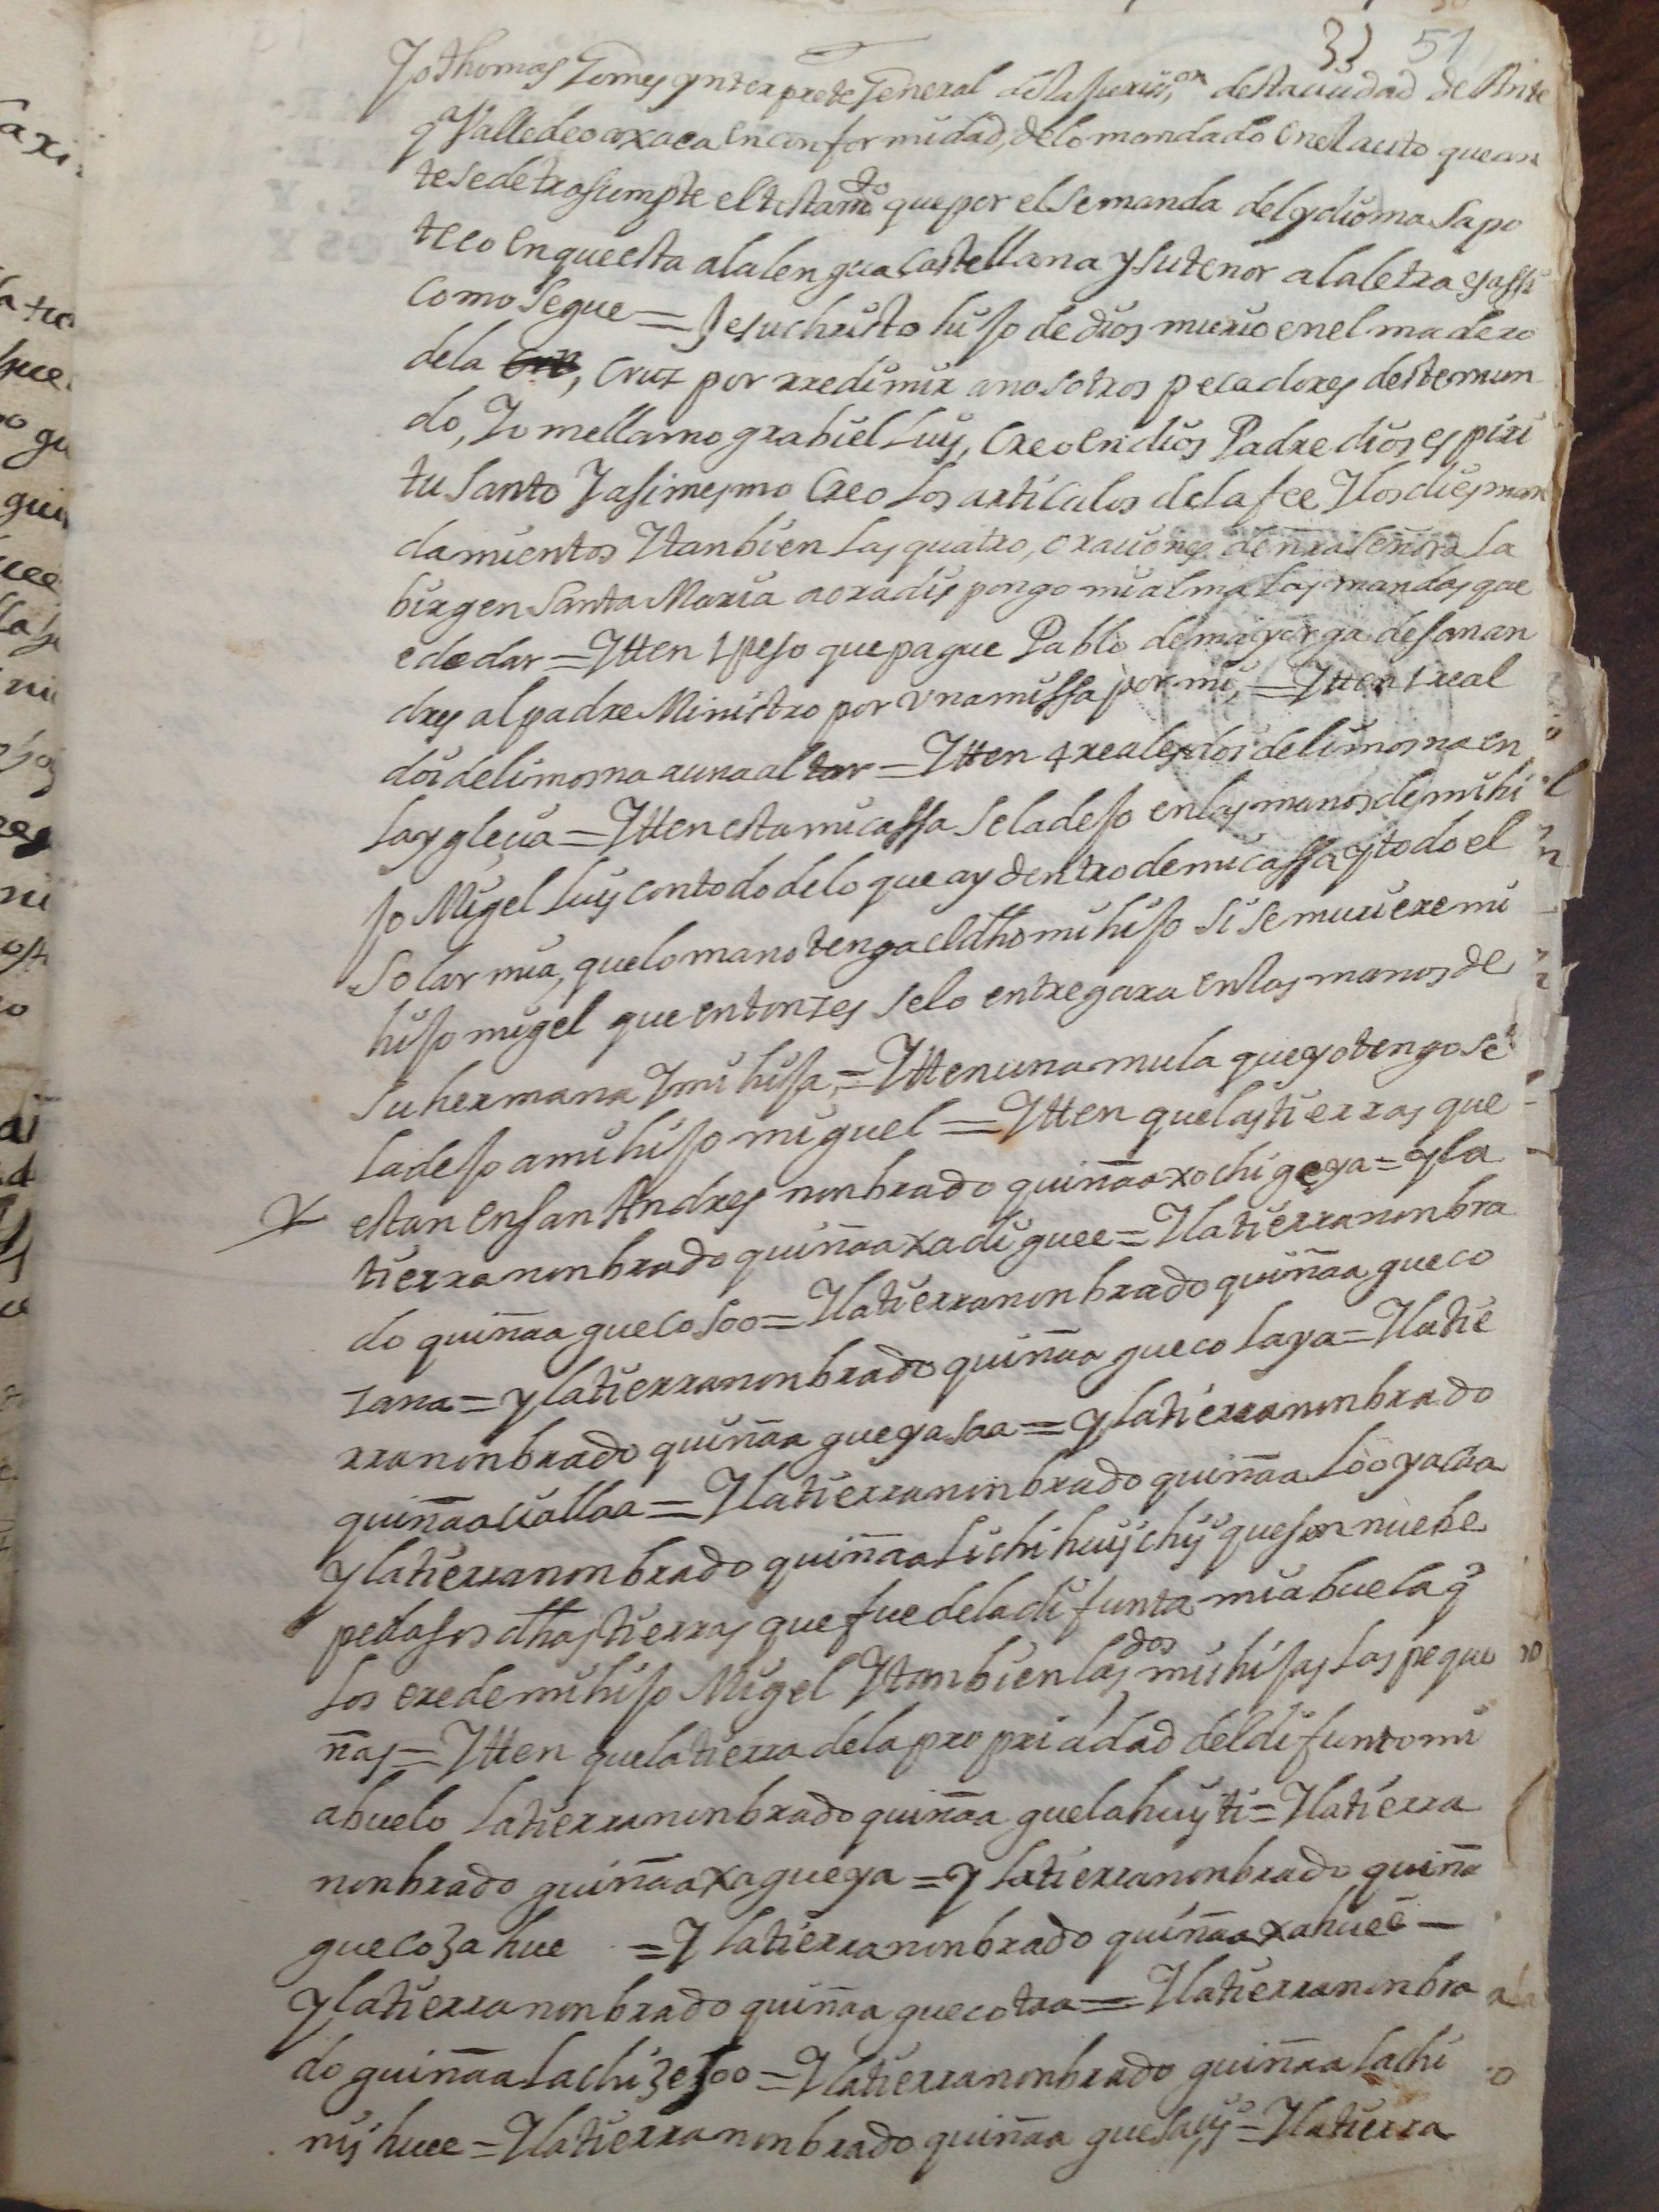 33 51
Yo thomas Gomes ynterprete General desta Jurisson desta ciudad de Ante
qa Valle de oaxaca en conformidad, de lo mandado en el auto que an
tesede trasumpte el testamto que por el se manda del ydioma sapo
teco en que esta a la lengua Castellana y su tenor a la letra es assi
como segue = Jesuchristo hijo de dios murio en el madero
de la Cruz por rredimir a nosotros pecadores deste mun
do, Yo me llamo grabiel luis, Creo en dios Padre dios espiri
tu santo Y asimesmo Creo los articulos de la fee Y los dies man
damientos Y tanbien las quatro, oraciones de nra señora la
birgen santa Maria aora dispongo mi alma las mandas que
e de dar = Ytten 1 peso que pague Pablo de mayorga de san an
dres al padre Ministro por una missa por mi, = Ytten 1 real
doi de limosna a una altar = Ytten 4 reales doi de limosna en
la yglecia = Ytten esta mi cassa se la dejo en las manos de mi hi
jo Migel luis con todo de lo que ay dentro de mi cassa y todo el
solar mia, que lo mano tenga el dho mi hijo si se muriere mi
hijo migel que entonzes se lo entregara en las manos de
su hermana Y mi hija, = Ytten una mula que yo tengo se
la dejo a mi hijo miguel = Ytten que las tierras que
estan en san Andres nonbrado quiñaa xochi geya = y la
tierra nonbrado quiñaa xadi guee = Y la tierra nonbra
do quiñaa gueco soo = Y la tierra nonbrado quiñaa gueco
zana = y la tierra nonbrado quiñaa gueco laya = Y la tie
rra nonbrado quiñaa gueya saa = y la tierra nonbrado
quiñaa ciallaa = Y la tierra nonbrado quiñaa loo yacaa
y la tierra nonbrado quiñaa lichi huijchij que son nuebe
pedasos dhas tierras que fue de la difunta mi abuela q
los erede mi hijo Migel Y tanbien las dos mis hijas las peque
ñas = Ytten que la tierra de la propriadad del difunto mi
abuelo la tierra nonbrado quiñaa guela huijti = Y la tierra
nonbrado guiñaa xagueya = Y la tierra nonbrado quiña
gueco za hue = Y la tierra nonbrado quiñaa xahuee —
y la tierra nonbrado quiñaa guecotaa = Y la tierra nonbra
do guiñaa lachi ze soo = Y la tierra nonbrado guiñaa lachi
nij huee = Y la tierra nonbrado quiñaa = Y la tierra